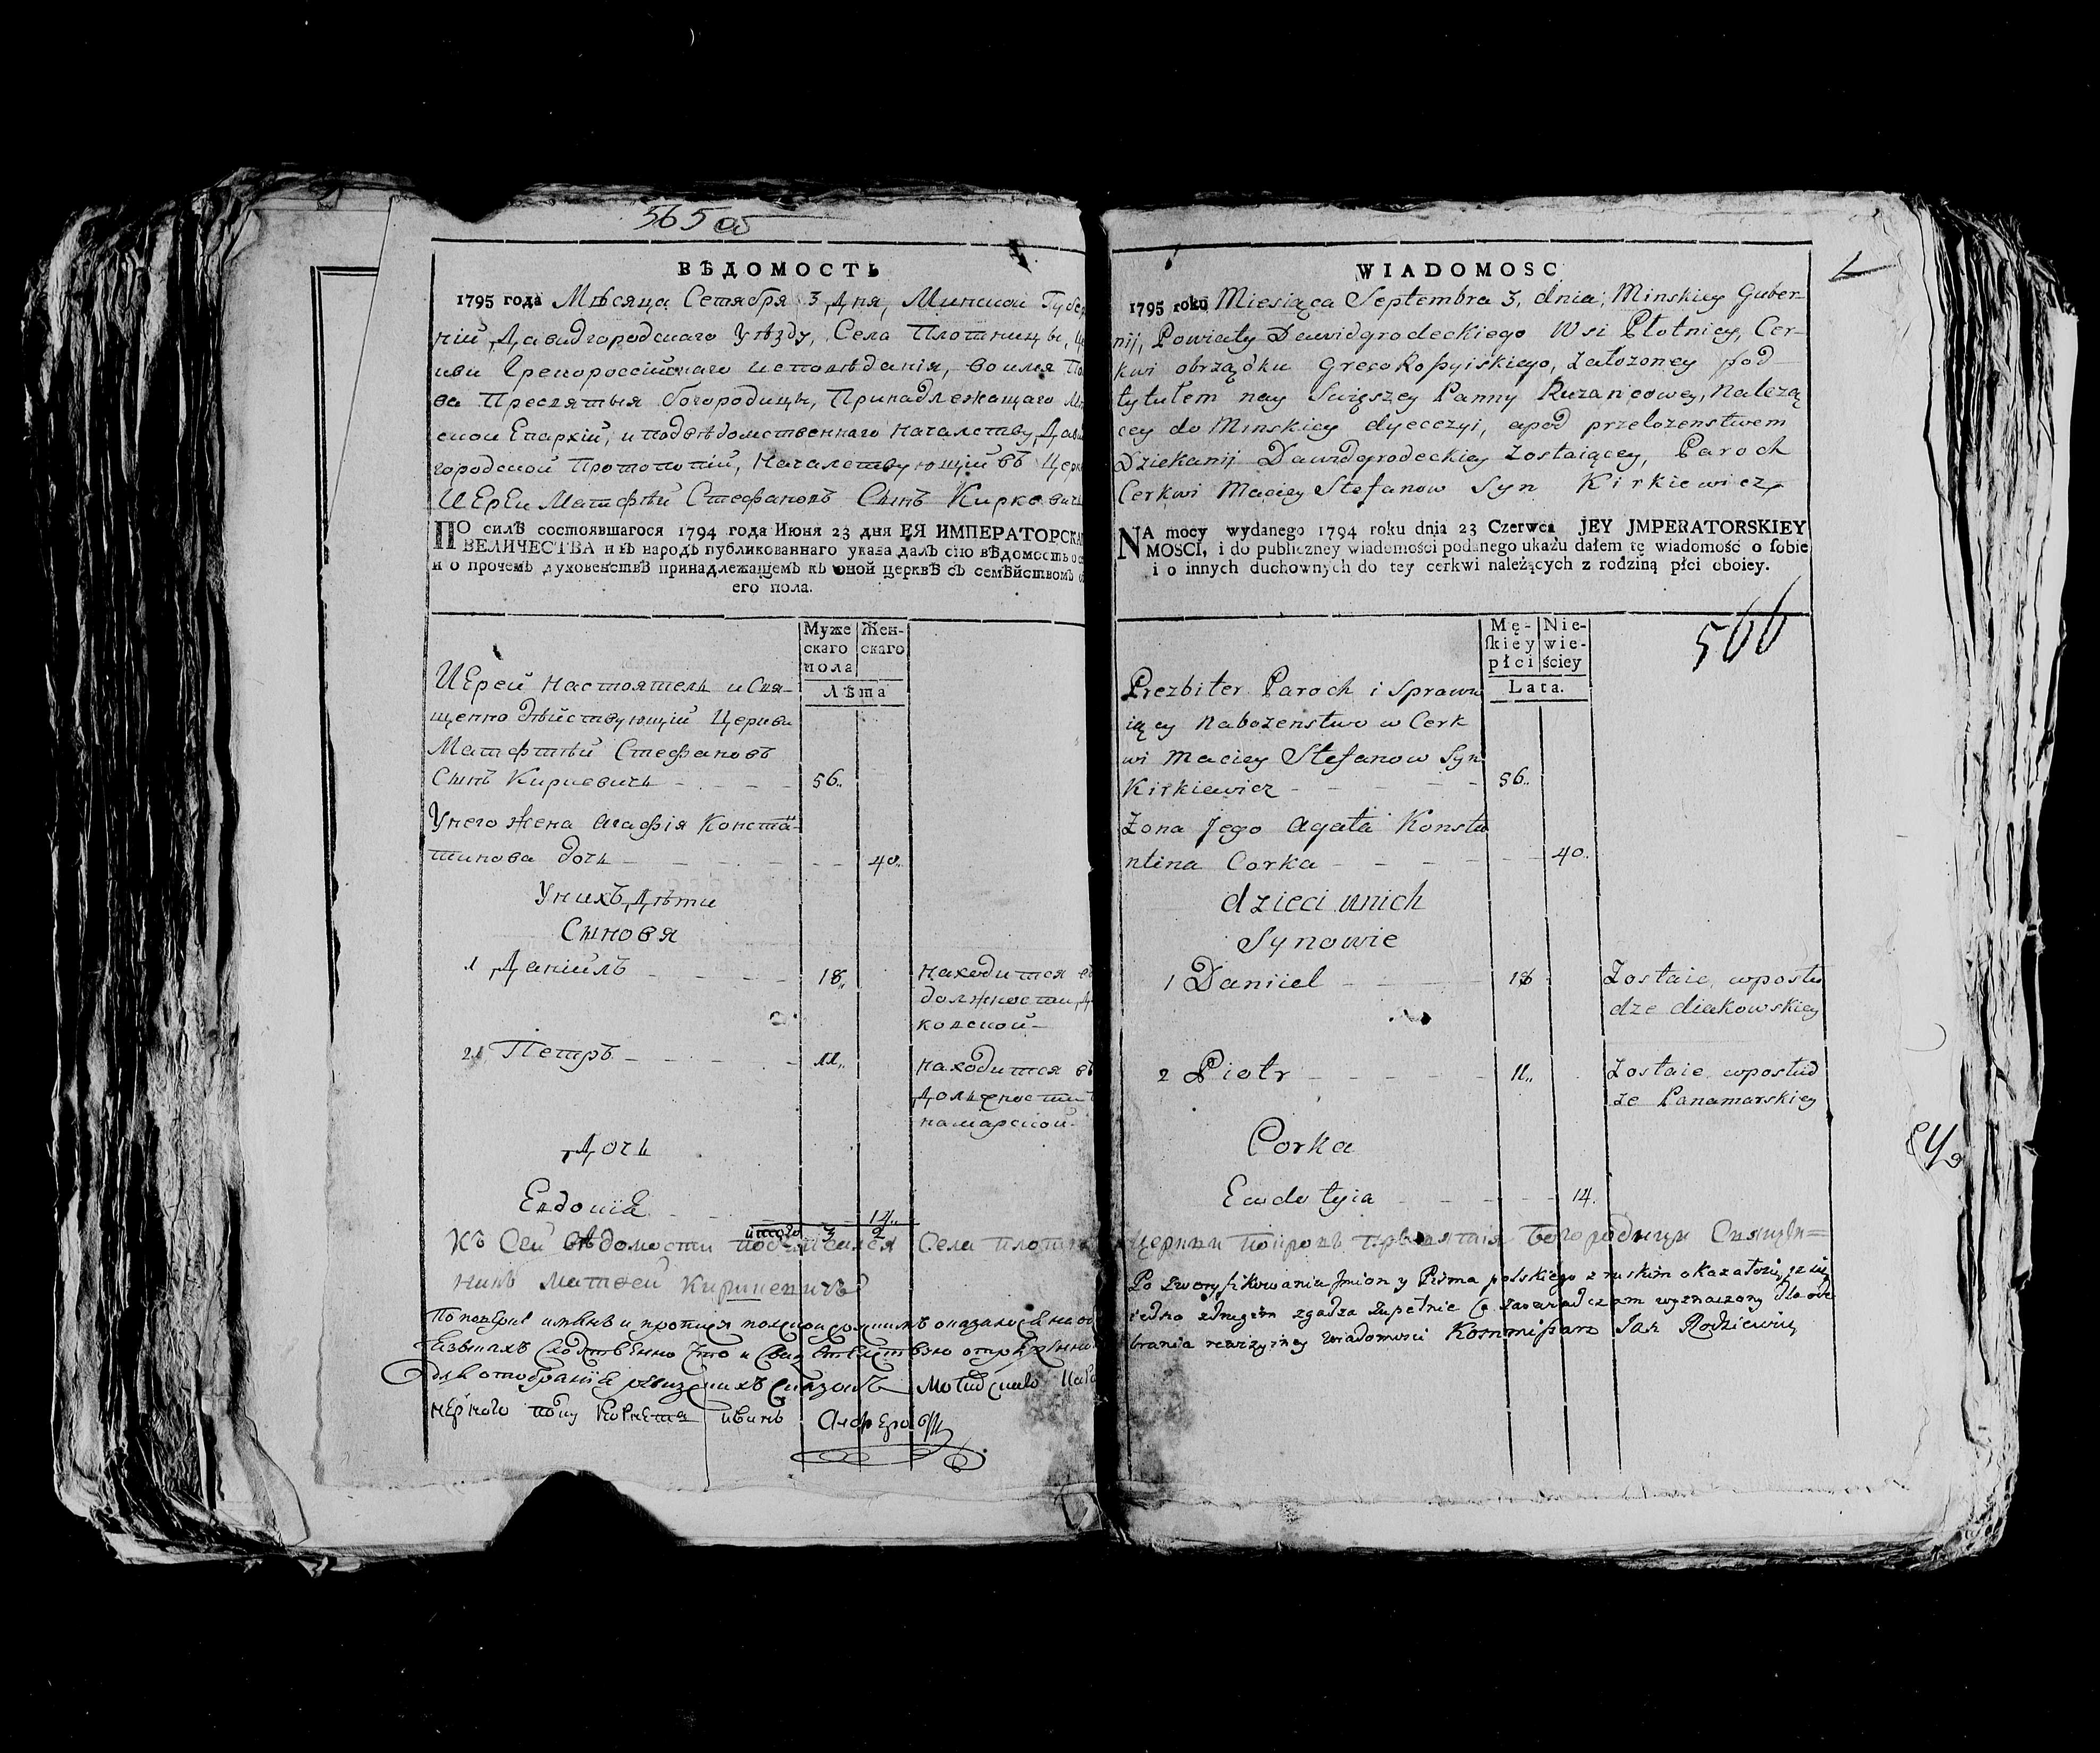 565 об
ВѢДОМОСТЬ
1795 года Мѣсяца Сетября 3 дня, Минской Губер
нїи, Давидгородскаго Уѣзду, Села Плотницы, Це
кви Грекороссїйскаго исповѣданїя, во имя По
ва Пресвятыя богородицы, Принадлежащаго Мин
ской Епархїи, и подвѣдомственнаго Началству, Дави
городской Протопопїи, Началствующїй въ Церк
ИЕреи Матфѣй Стефановъ Сынъ Киркевичъ
ПО силѣ состоявшагося 1794 года Июня 23 дня ЕЯ ИМПЕРАТОРСКА
ВЕЛИЧЕСТВА и въ народъ публикованнаго указа далъ сїю вѣдомость о с
и о прочемъ духовенствѣ принадлежащемъ къ оной церквѣ съ семѣйствомъ об
его пола.
Муже
скаго
пола
Жен-
скаго
Лѣта
ИЕрей Настоятель и Свя-
щенно дѣйствующїй Церкви
Матфтѣй Стефановъ
Сынъ Киркевичъ - - - - 56..
Унего жена Агафїя Конста-
тинова дочь - - - - - 40..
Унихъ Дѣти
Сыновя
1 Данїилъ - - - - 18..
находится въ
должности Дя
ковской-
2 Петръ - - - - 11..
находится въ
Должности
намарской-
Дочь
Евдокїя - - 14..
итого 3 2
Къ Сей вѣдомости подписался Села Плотн
никъ Матвей Киркевичъ
для отобранїя
Корнета
WIADOMOSC
1795 roku Miesiąca Septembra 3, dnia, Minskiey Guber-
nij, Powiatu Dawidgrodeckiego Wsi Płotnicy, Cer-
kwi obrządku GrecoRoßyiskiego, załozoney pod
tytułem nay Swięszey Panny Ruzancowey, Nalezą
cey do Minskiey dyecezyi, apod przełozenstwem
Dziekanij Dawidgrodeckiey Zostaiącey, Paroch
Cerkwi Maciey Stefanow Syn Kirkiewicz
NA mocy wydanego 1794 roku dnia 23 Czerwca JEY JMPERATORSKIEY
MOSCI, i do publiczney wiadomości podanego ukazu dałem tę wiadomość o sobie
i o innych duchownych do tey cerkwi należących z rodziną płci oboiey.
566
Mę-
skiey
płci
Nie-
wie-
ściey
Lata.
Prezbiter Paroch i Sprawu
iący Nabozenstwo w Cerk
wi Maciey Stefanow Syn
Kirkiewicz - - - - - 56..
Zona Jego Agata Konsta
ntina Corka - - - - - 40.
dzieci unich
Synowie
1 Daniiel - - - - 18
Zostaie wposłu
dze diakowskiey
2 Piotr - - - - - 11..
Zostaie wposług
ze Panamarskiey
Corka
Ewdotyia - - - - 14.
Церкви Покрова Пресвятия Богородици Священ=
Po zweryfikowaniu Jmion y Pisma polskiego z ruskim okazało się, ze się
iedno zdrugim zgadza zupełnie Co zaswiadczam wyznaczony dla ode
brania rewizyiney wiadomosci Kommißarz Jan Rodziewicz